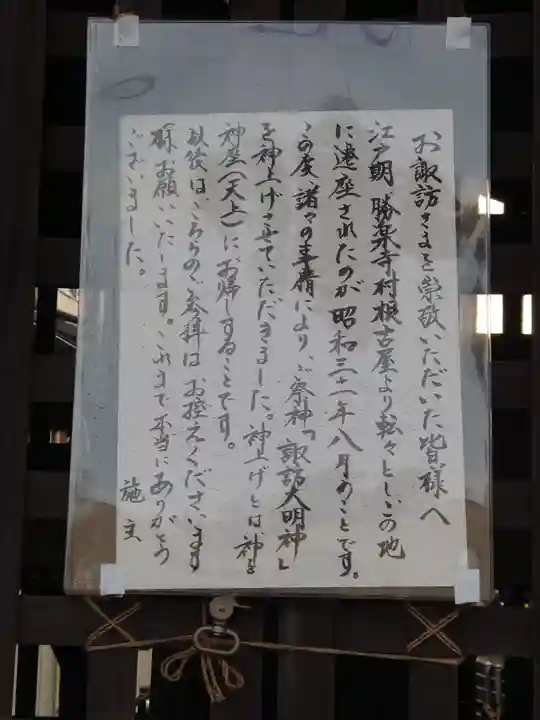 お諏訪さまを崇敬いただいた皆様へ
江戸期、勝楽寺村根古屋より転々とし、この地
に遷座されたのが昭和三十一年八月のことです。
この度諸々の事情により、ご祭神「諏訪大明神」
を神上げさせていただきました。神上げとは神を
神座(天上)にお帰しすることです。
以後は、こちらのご参拝はお控えくださいます
様、お願いいたします。これまで本当にありがとう
ございました。
施主